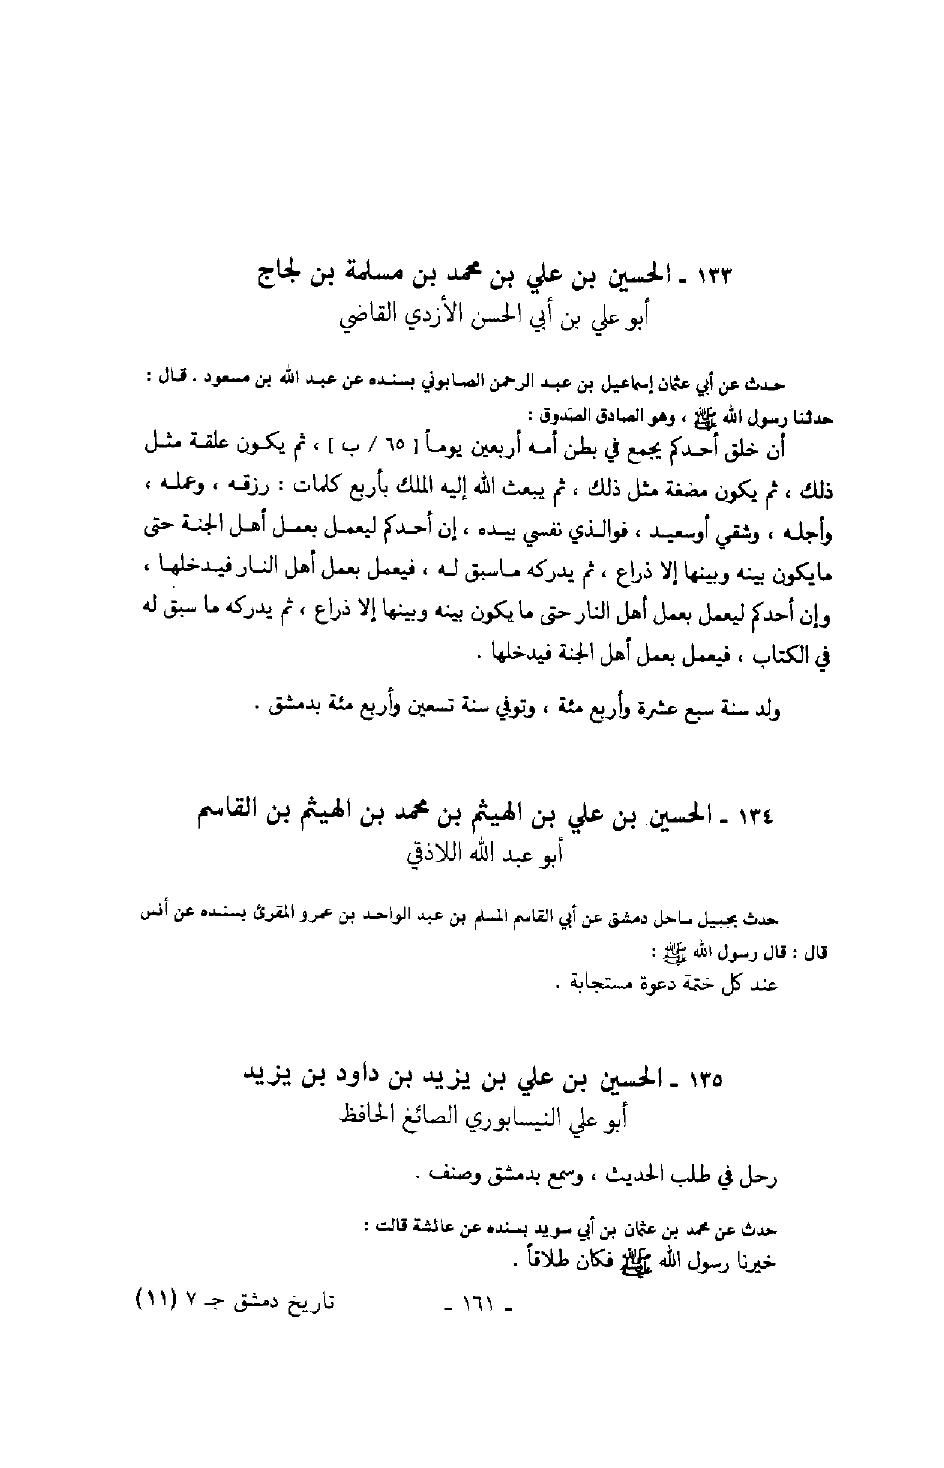 ١٣٣ ـ الحسين بن علي بن محمد بن مسلمة بن لجاج
أبو علي بن أبي الحسن الأزدي القاضي
حدث عن أبي عثمان إسماعيل بن عبد الرحمن الصابوني بسنده عن عبد الله بن مسعود . قال :
حدثنا رسول الله ﷺ ، وهو الصادق الصَدوق :
أن خلق أحدكم يجمع في بطن أمه أربعين يوماً [ ٦٥ / ب ] ، ثم يكون علقة مثل
ذلك ، ثم يكون مضغة مثل ذلك ، ثم يبعث الله إليه الملك بأربع كلمات : رزقه ، وعمله ،
وأجله ، وشقي أوسعيد ، فوالذي نفسي بيده ، إن أحدكم ليعمل بعمل أهل الجنة حتى
مايكون بينه وبينها إلا ذراع ، ثم يدركه ماسبق له ، فيعمل بعمل أهل النار فيدخلها ،
وإن أحدكم ليعمل بعمل أهل النار حتى ما يكون بينه وبينها إلا ذراع ، ثم يدركه ما سبق له
في الكتاب ، فيعمل بعمل أهل الجنة فيدخلها .
ولد سنة سبع عشرة وأربع مئة ، وتوفي سنة تسعين وأربع مئة بدمشق .
١٣٤ ـ الحسين بن علي بن الهيثم بن محمد بن الهيثم بن القاسم
أبو عبد الله اللاذقي
حدث بجبيل ساحل دمشق عن أبي القاسم المسلم بن عبد الواحد بن عمرو المقرئ بسنده عن أنس
قال : قال رسول الله ﷺ :
عند كل ختمة دعوة مستجابة .
١٣٥ ـ الحسين بن علي بن يزيد بن داود بن يزيد
أبو علي النيسابوري الصائغ الحافظ
رحل في طلب الحديث ، وسمع بدمشق وصنف .
حدث عن محمد بن عثمان بن أبي سويد بسنده عن عائشة قالت :
خيرنا رسول الله ﷺ فكان طلاقاً .
ـ ١٦١ ـ
تاريخ دمشق جـ ٧ (١١)